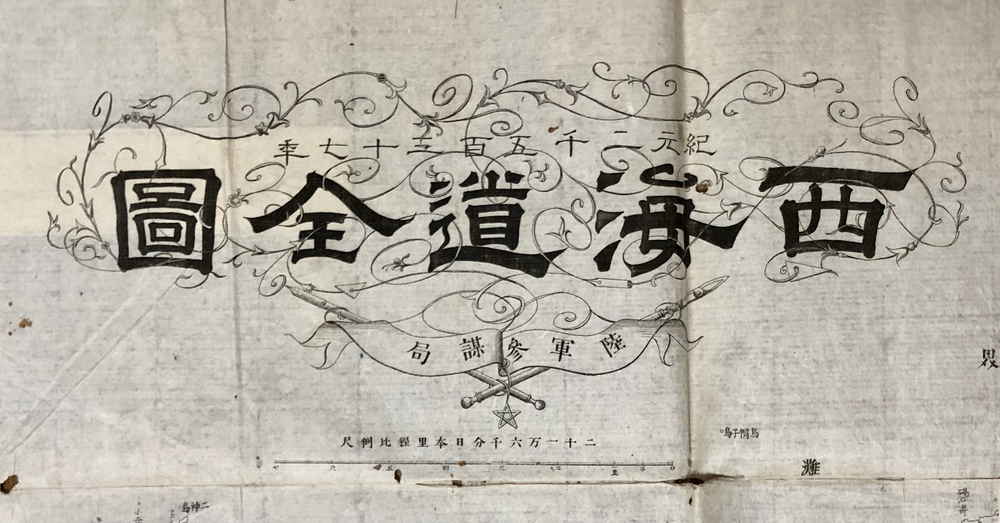 紀元二千五百三十七年
西海道全圖
陸軍參謀局
二十一万六千分日本里程比例尺
灘
二神島